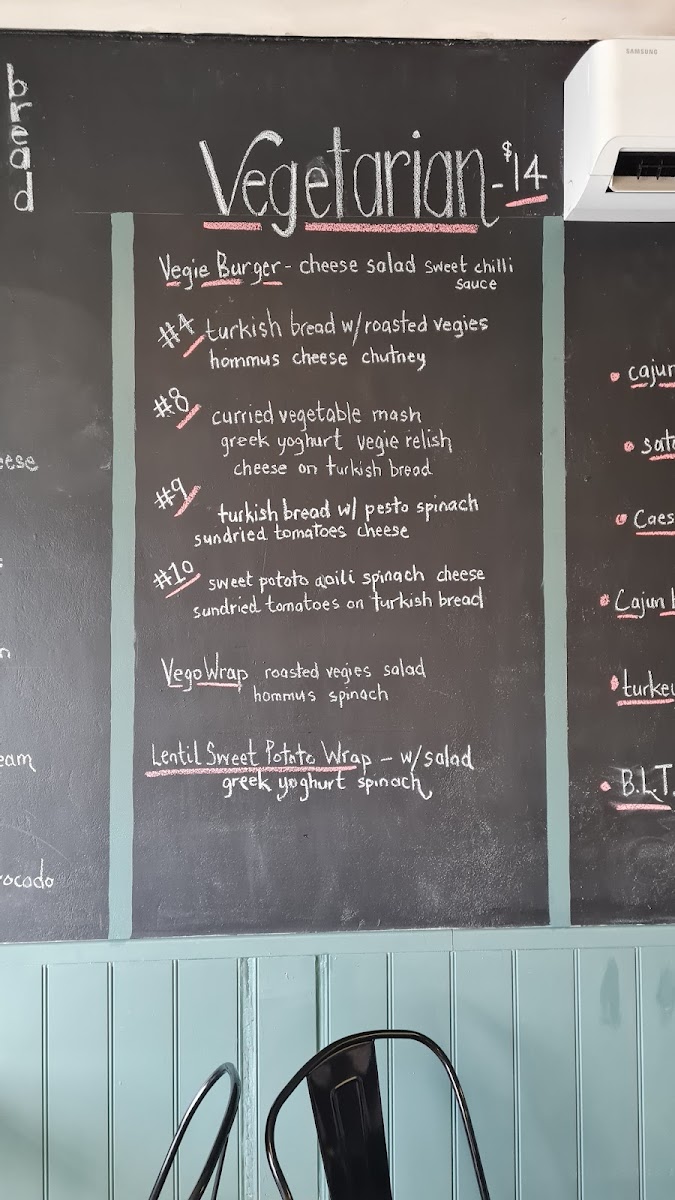 bread
SAMSUNG
Vegetarian - $14
Vegie Burger - cheese salad sweet chilli
sauce
#4 turkish bread w/roasted vegies
hommus cheese chutney
#8 curried vegetable mash
greek yoghurt vegie relish
cheese on turkish bread
#9 turkish bread w/ pesto spinach
sundried tomatoes cheese
#10 sweet potato aoili spinach cheese
sundried tomatoes on turkish bread
Vego Wrap roasted vegies salad
hommus spinach
Lentil Sweet Potato Wrap - w/salad
greek yoghurt spinach
cajun
sat
Caes
Cajun
turke
B.L.T.
eese
eam
ocado